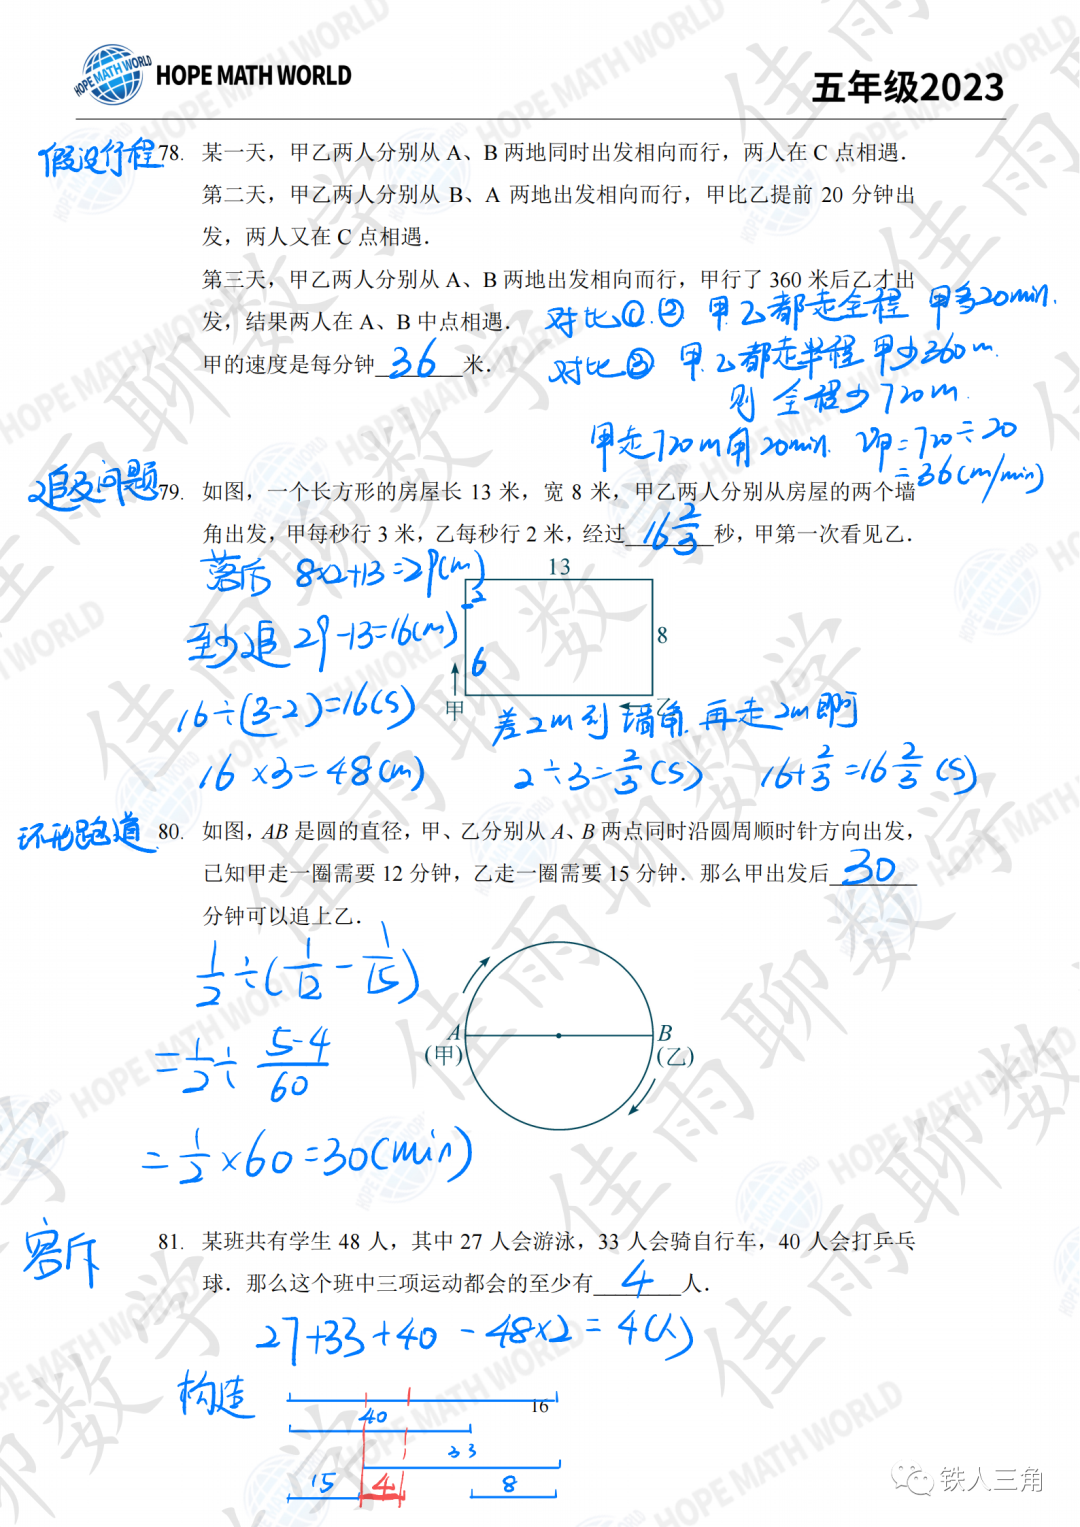 HOPE MATH WORLD
HOPE MATH WORLD
五年级2023
假设行程
78. 某一天，甲乙两人分别从 A、B 两地同时出发相向而行，两人在 C 点相遇．
第二天，甲乙两人分别从 B、A 两地出发相向而行，甲比乙提前 20 分钟出
发，两人又在 C 点相遇．
第三天，甲乙两人分别从 A、B 两地出发相向而行，甲行了 360 米后乙才出
发，结果两人在 A、B 中点相遇．
对比①.② 甲乙都走全程 甲多20min.
甲的速度是每分钟 36 米．
对比③ 甲.乙都走半程 甲少360m
则 全程少720m.
甲走720m用20min. V甲=720÷20
=36(m/min)
追及问题
79. 如图，一个长方形的房屋长 13 米，宽 8 米，甲乙两人分别从房屋的两个墙
角出发，甲每秒行 3 米，乙每秒行 2 米，经过 16 2/3 秒，甲第一次看见乙．
落后 8×2+13=29(m)
13
2
至少追 29-13=16(m)
8
6
16÷(3-2)=16(s)
甲
乙
差2m到墙角. 再走2m即可
16×3=48(m)
2÷3=2/3(s) 16+2/3=16 2/3 (s)
环形跑道
80. 如图，AB 是圆的直径，甲、乙分别从 A、B 两点同时沿圆周顺时针方向出发，
已知甲走一圈需要 12 分钟，乙走一圈需要 15 分钟．那么甲出发后 30
分钟可以追上乙．
1/2÷(1/12-1/15)
A
B
(甲)
(乙)
=1/2÷ 5-4/60
=1/2×60=30(min)
容斥
81. 某班共有学生 48 人，其中 27 人会游泳，33 人会骑自行车，40 人会打乒乓
球．那么这个班中三项运动都会的至少有 4 人．
27+33+40-48×2=4(人)
构造
16
40
33
15
4
8
铁人三角
佳雨聊数学